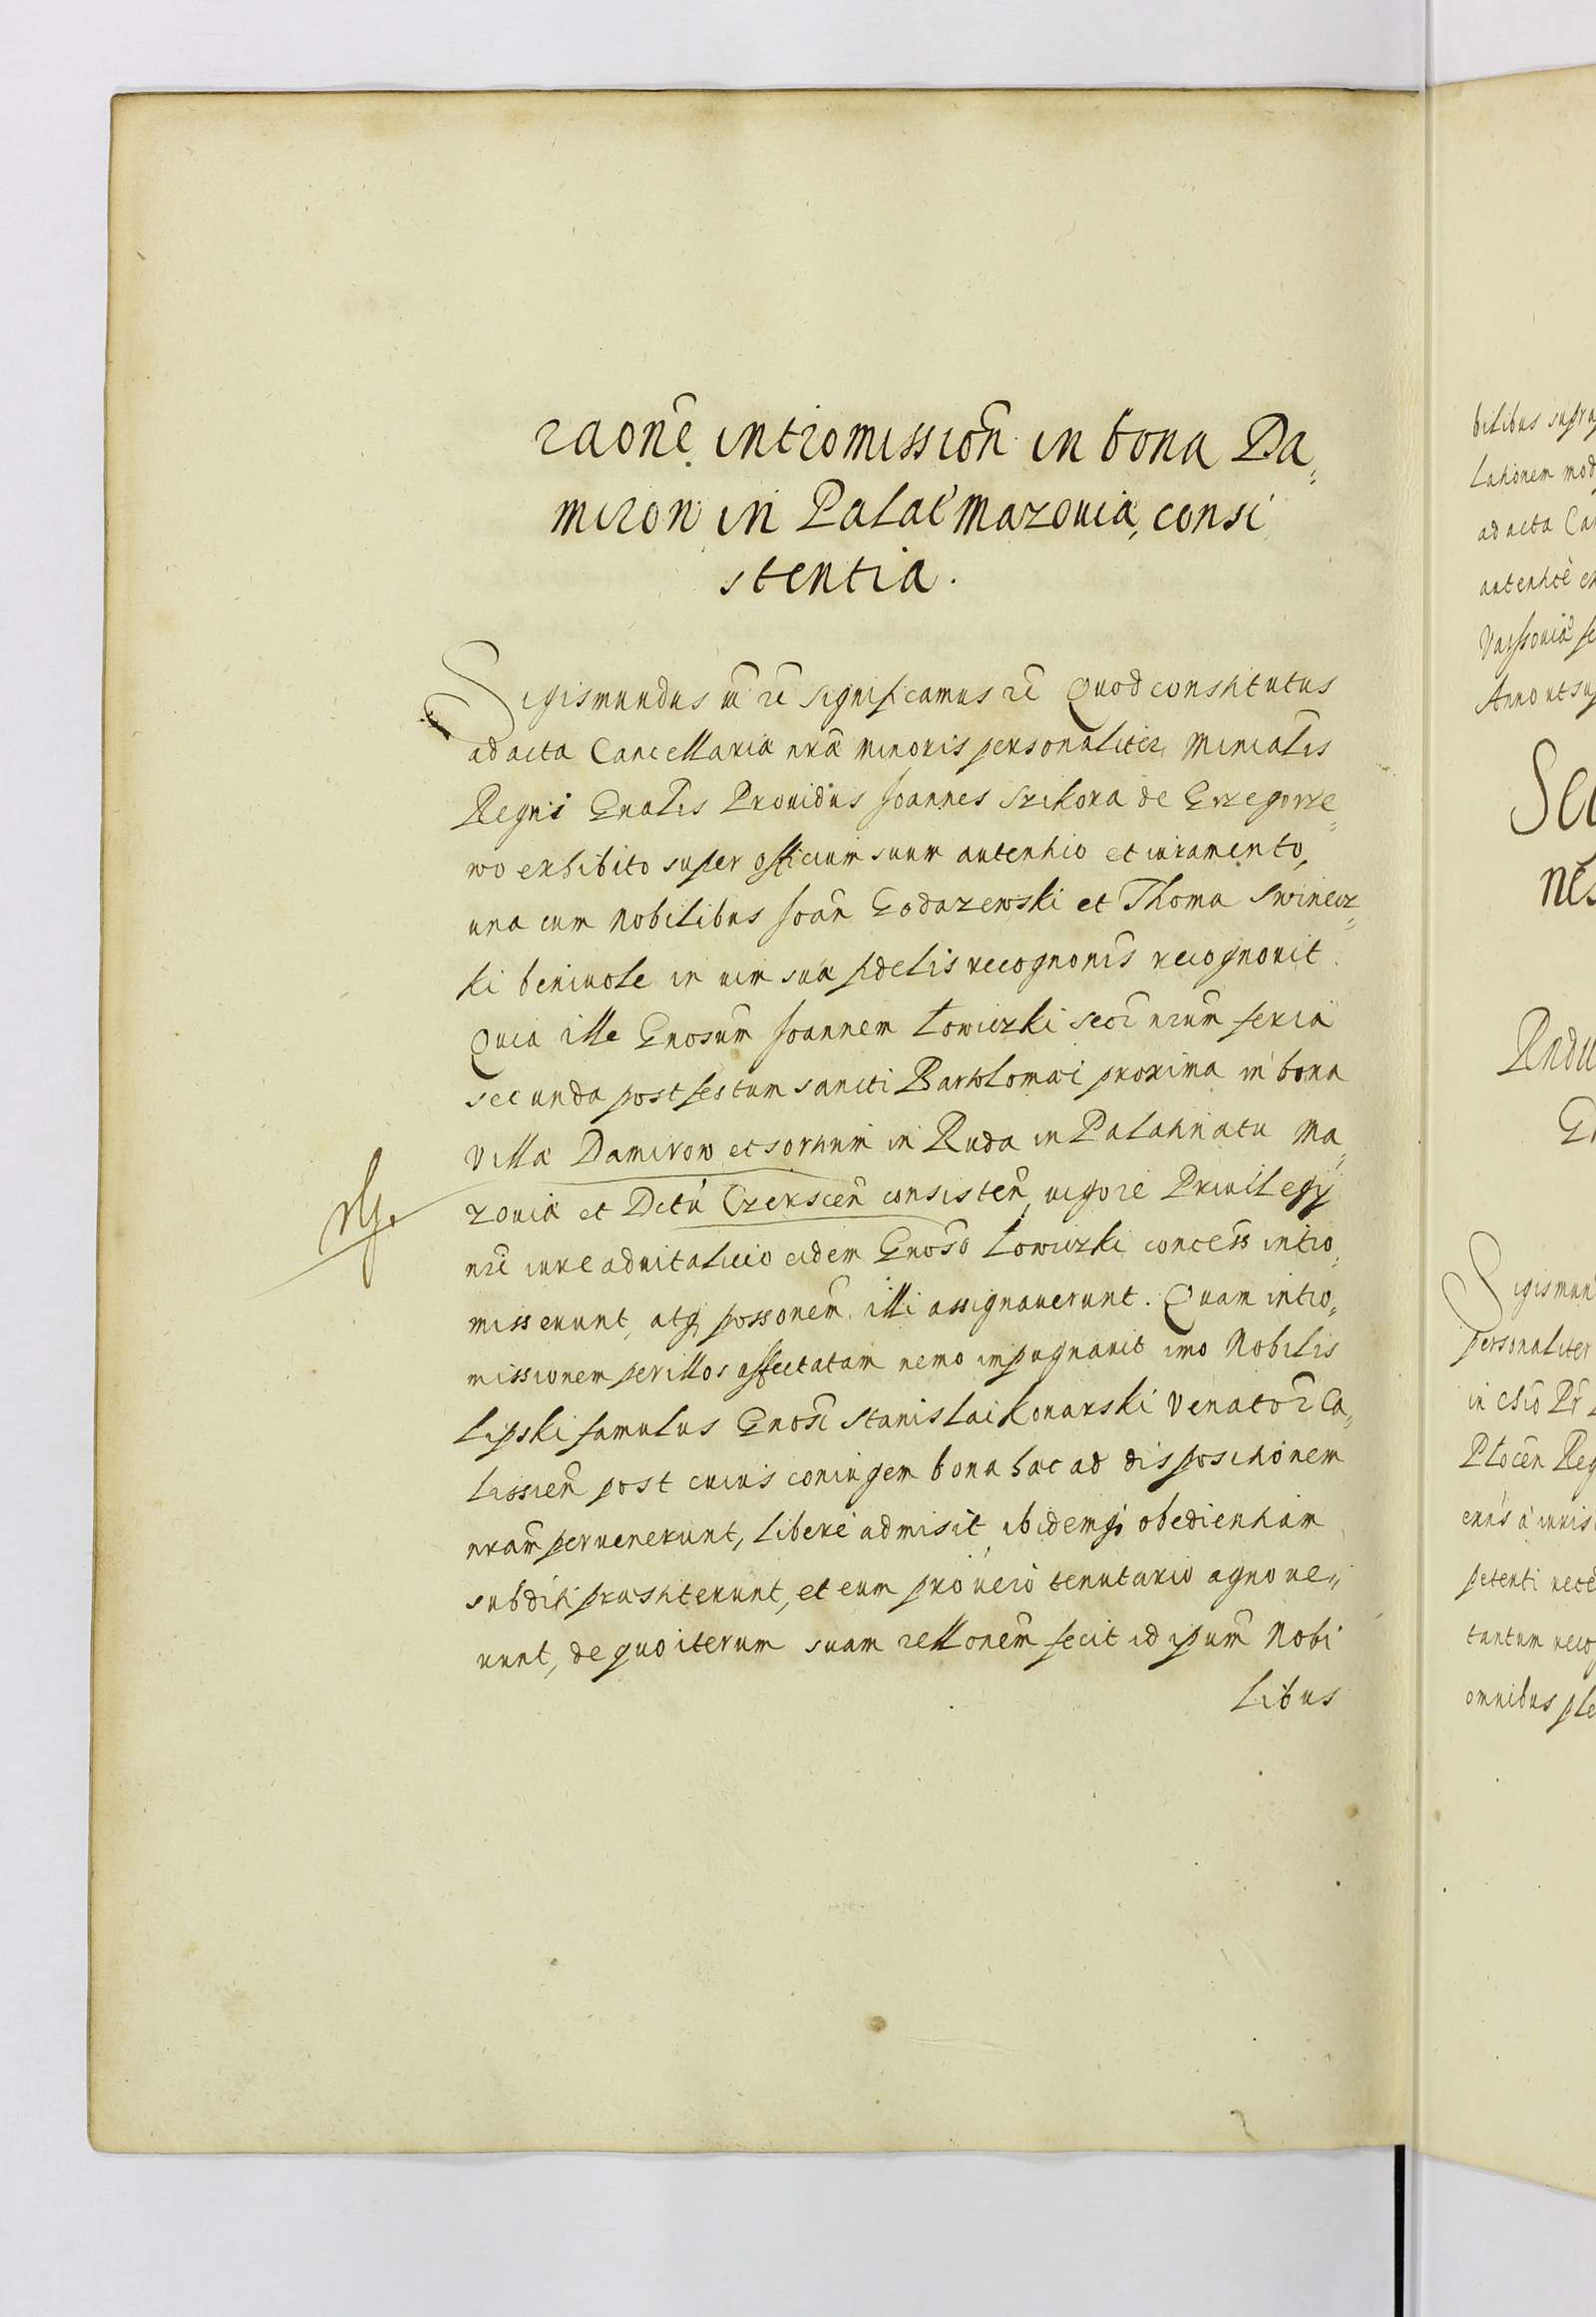 raone intromission in bona Da„
miron in Palat Mazouiæ consi
stentia.
Sigismundus etc significamus etc Quod constitutus
ad acta Cancellariæ nræ minoris personaliter Minialis
Regni Gnalis Prouidus Joannes Szikora de Grzegorze„
wo exhibito super officium suum autentico et iuramento,
una cum Nobilibus Joan Godazewski et Thoma Swinecz„
ki beniuole in uim suæ fidelis recognonis recognouit.
Quia ille Gnosum Joannem Łowiczki Secr nrum feria
secunda post festum sancti Bartholomæi proxima in bona
Villæ Damirow et sortium in Ruda in Palatinatu Ma„
zouiæ et Dctu Czerscen consisten, uigore Priuilegij
nri iure aduitalicio eidem Gnoso Łowiczki concess intro„
misserunt, atq possonem illi assignauerunt. Quam intro„
missionem per illos affectatam nemo impugnauit imo Nobilis
Lipski famulus Gnosi Stanislai Konarski Venator Ca„
lissien post cuius coniugem bona hæc ad dispositionem
nram peruenerunt, libere admisit, ibidemq obedientiam
subditi præstiterunt, et eum pro uero tenutario agnoue„
runt, de quo iterum suam rellonem fecit id ipsum Nobi
libus
bilibus supra
lationem mod
ad acta Ca
autentice ex
Varssouiæ fe
Anno ut su
Sec
nes
Radu
G
Sigismun
personaliter
in
Plocen Reg
petenti rece
tantum reco
omnibus ple